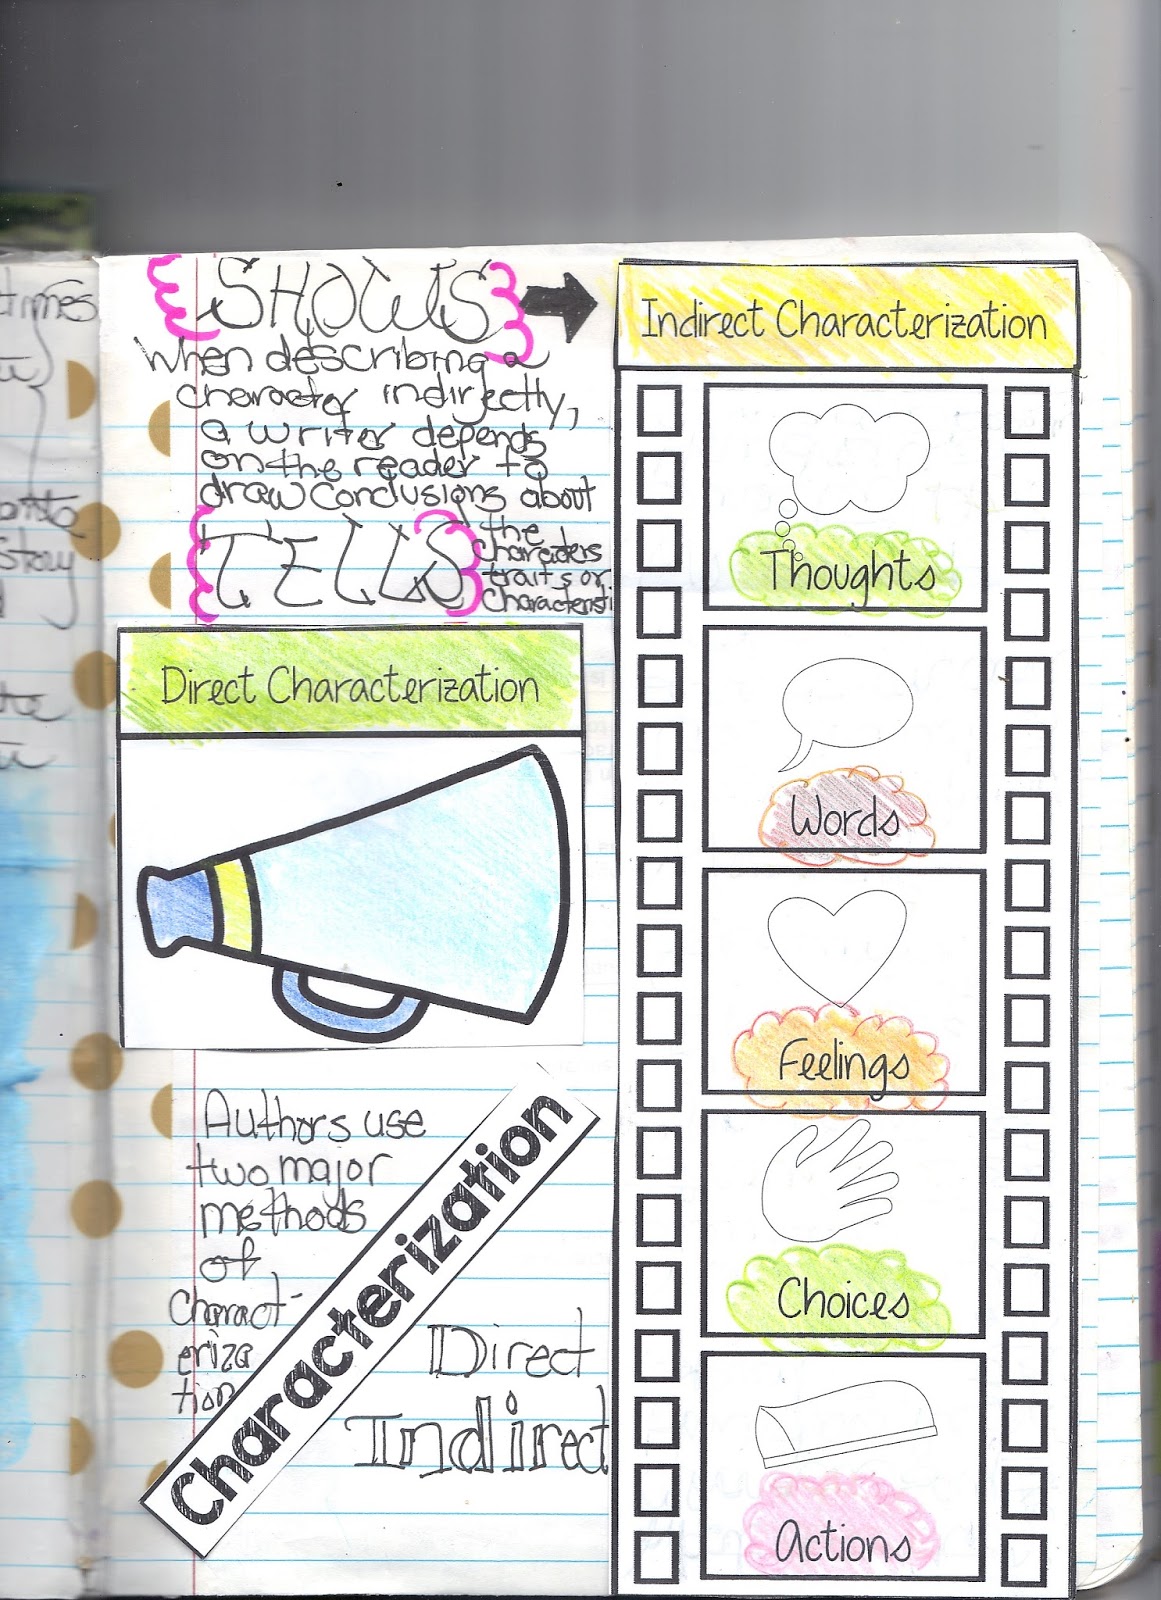 SHOWS
When describing a
character indirectly,
a writer depends
on the reader to
draw conclusions about
the
characters
traits or
characteristi
TELLS
Direct Characterization
Authors use
two major
methods
of
charact-
eriza
tion
Characterization
Direct
Indirect
Indirect Characterization
Thoughts
Words
Feelings
Choices
Actions
times
Story